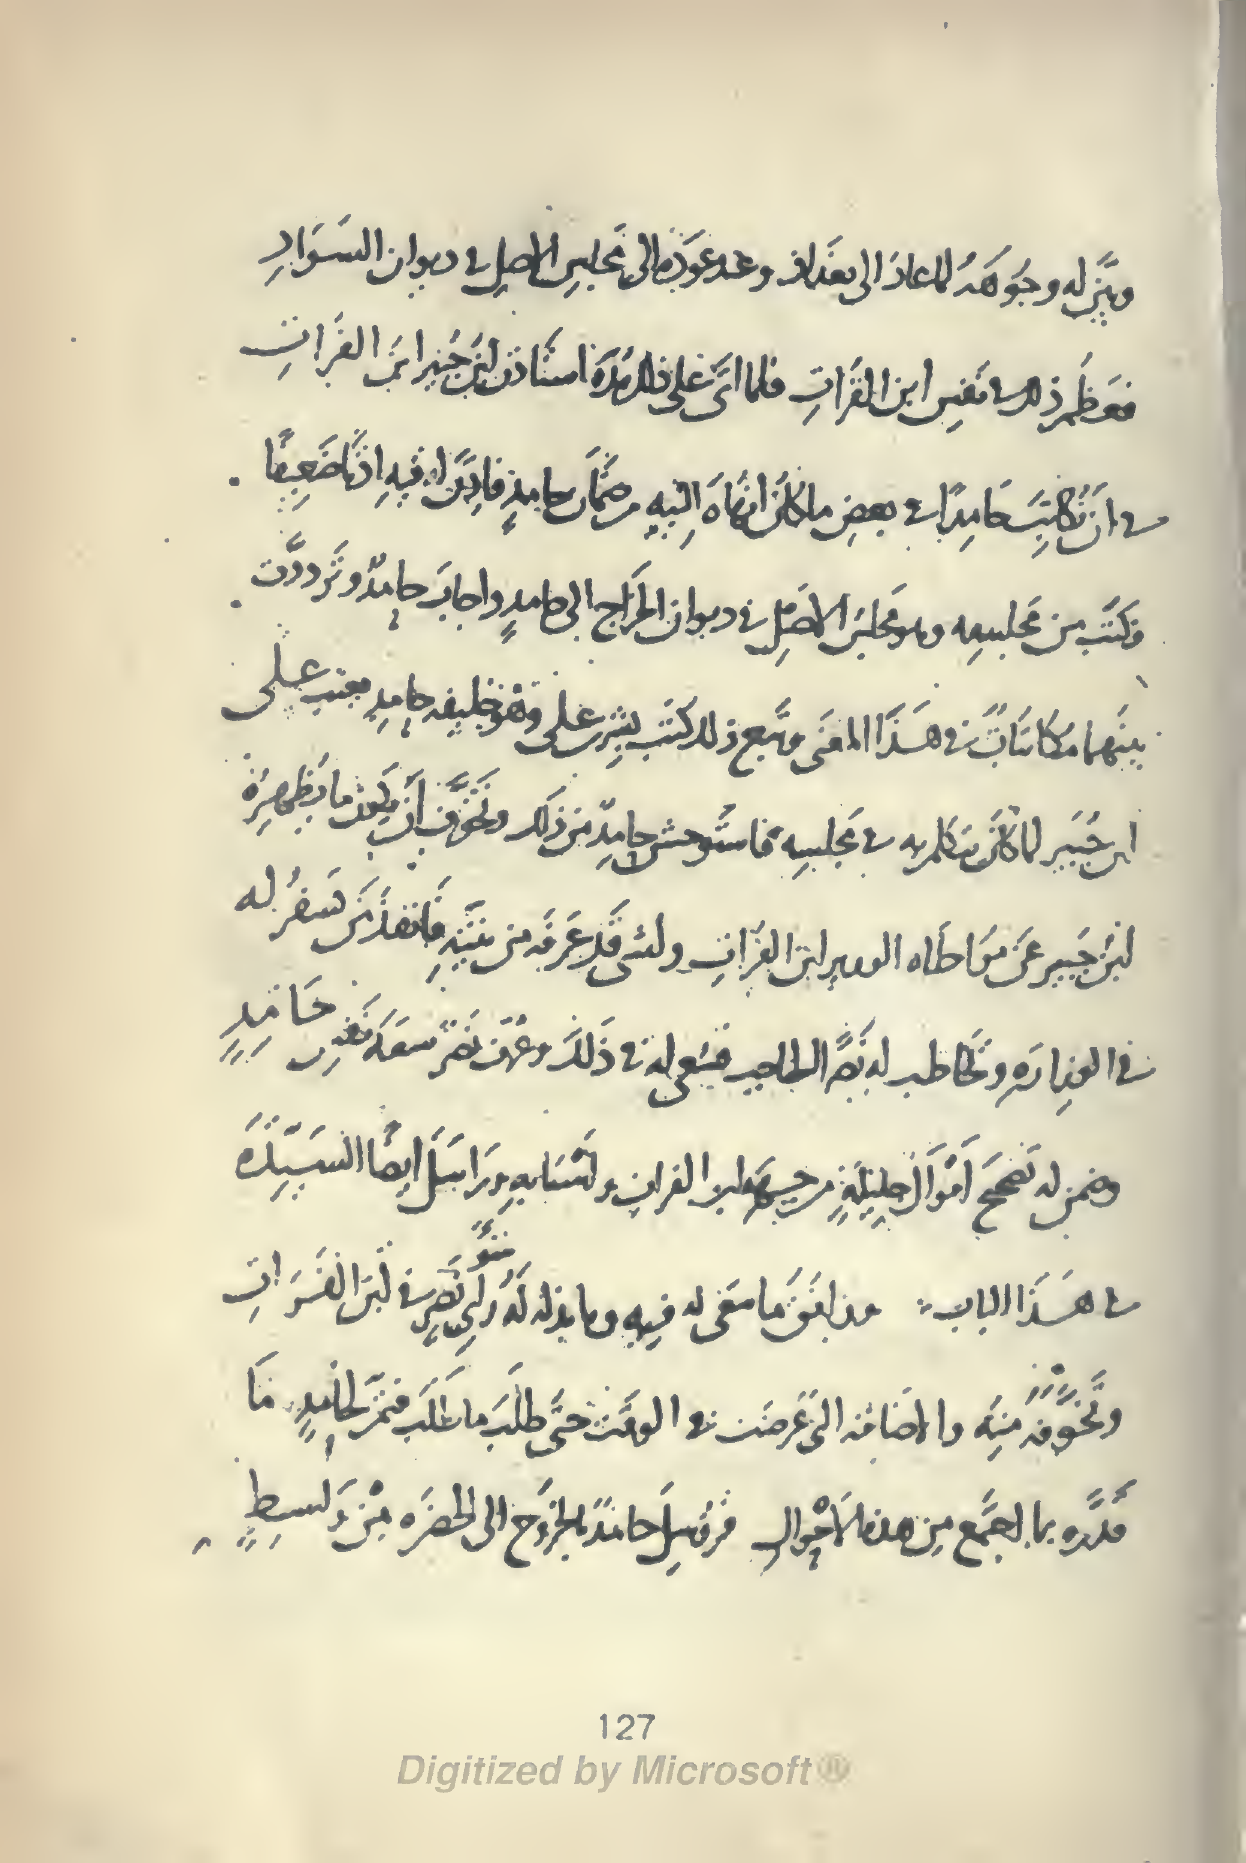 ويبين له وجوهه لما عاد الى بغداد وعند عوده الى مجلس الاصل في ديوان السَوَادِ
فعَظُم ذلك في نَفسِ ابن الفُرَاتِ فلما اتَى على ذلك مُدّة استَاذن ابن جُبَير ابن الفُرَاتِ
في ان يُكاتِبَ حَامِدًا في بعضِ ما كان انهاهُ اليْهِ من ضَمَان حامِدٍ فاذِن له فيه اذنًا ضَعِيفًا
فكتَب من مجلسِه وهو مجلس الاصْل في ديوان الخَرَاج الى حامدٍ واجابَ حامِدٌ وتَردّدت
بينهما مكاتبَاتٌ في هَذَا المعنَى وتبع ذلك كتب بشر بن علي وهو خليفه حامِدٍ بعتب علي
ابن جُبَير لما كان يتكلم به في مجلسِه فاستوحش حامِدٌ من ذلك وتخوَّفَ ان يكون ما يُظهِرُهُ
ابن جُبَير عن مُوَاطاه الوزير ابن الفُرَاتِ ولشى قد عَرفَه من نيّتِهِ فانفذ من سَفَرَ له
في الوِزَارَةِ وتخاطب له نصرًا الحاجب فسَعى له في ذَلكَ وعَرَف نصر سعَه نفسِ حَامِدٍ
وضمن له تصحيح اموَالٍ جليلةٍ من جهه ابن الفرات واسْبَابِهِ ورَاسَلَ ايضًا السَيّدَةَ
في هَذَا الباب وقد اتفَقَ ما سَعَى له فيه وما بذله لَهُ سُوءُ رَاي نَصْرٍ في ابن الفُرَاتِ
وتخوّفه منه والاضَاقه التي عَرضَت في الوقت حتى طلَبَ ما طَلَبَ فتمّ لحامِدٍ مَا
قدّره بما اجتَمع من هذه الاحْوالِ فرُوسِلَ حامدٌ بالخرُوج الى الحضرَه مِن وَاسِطٍ
127
Digitized by Microsoft®